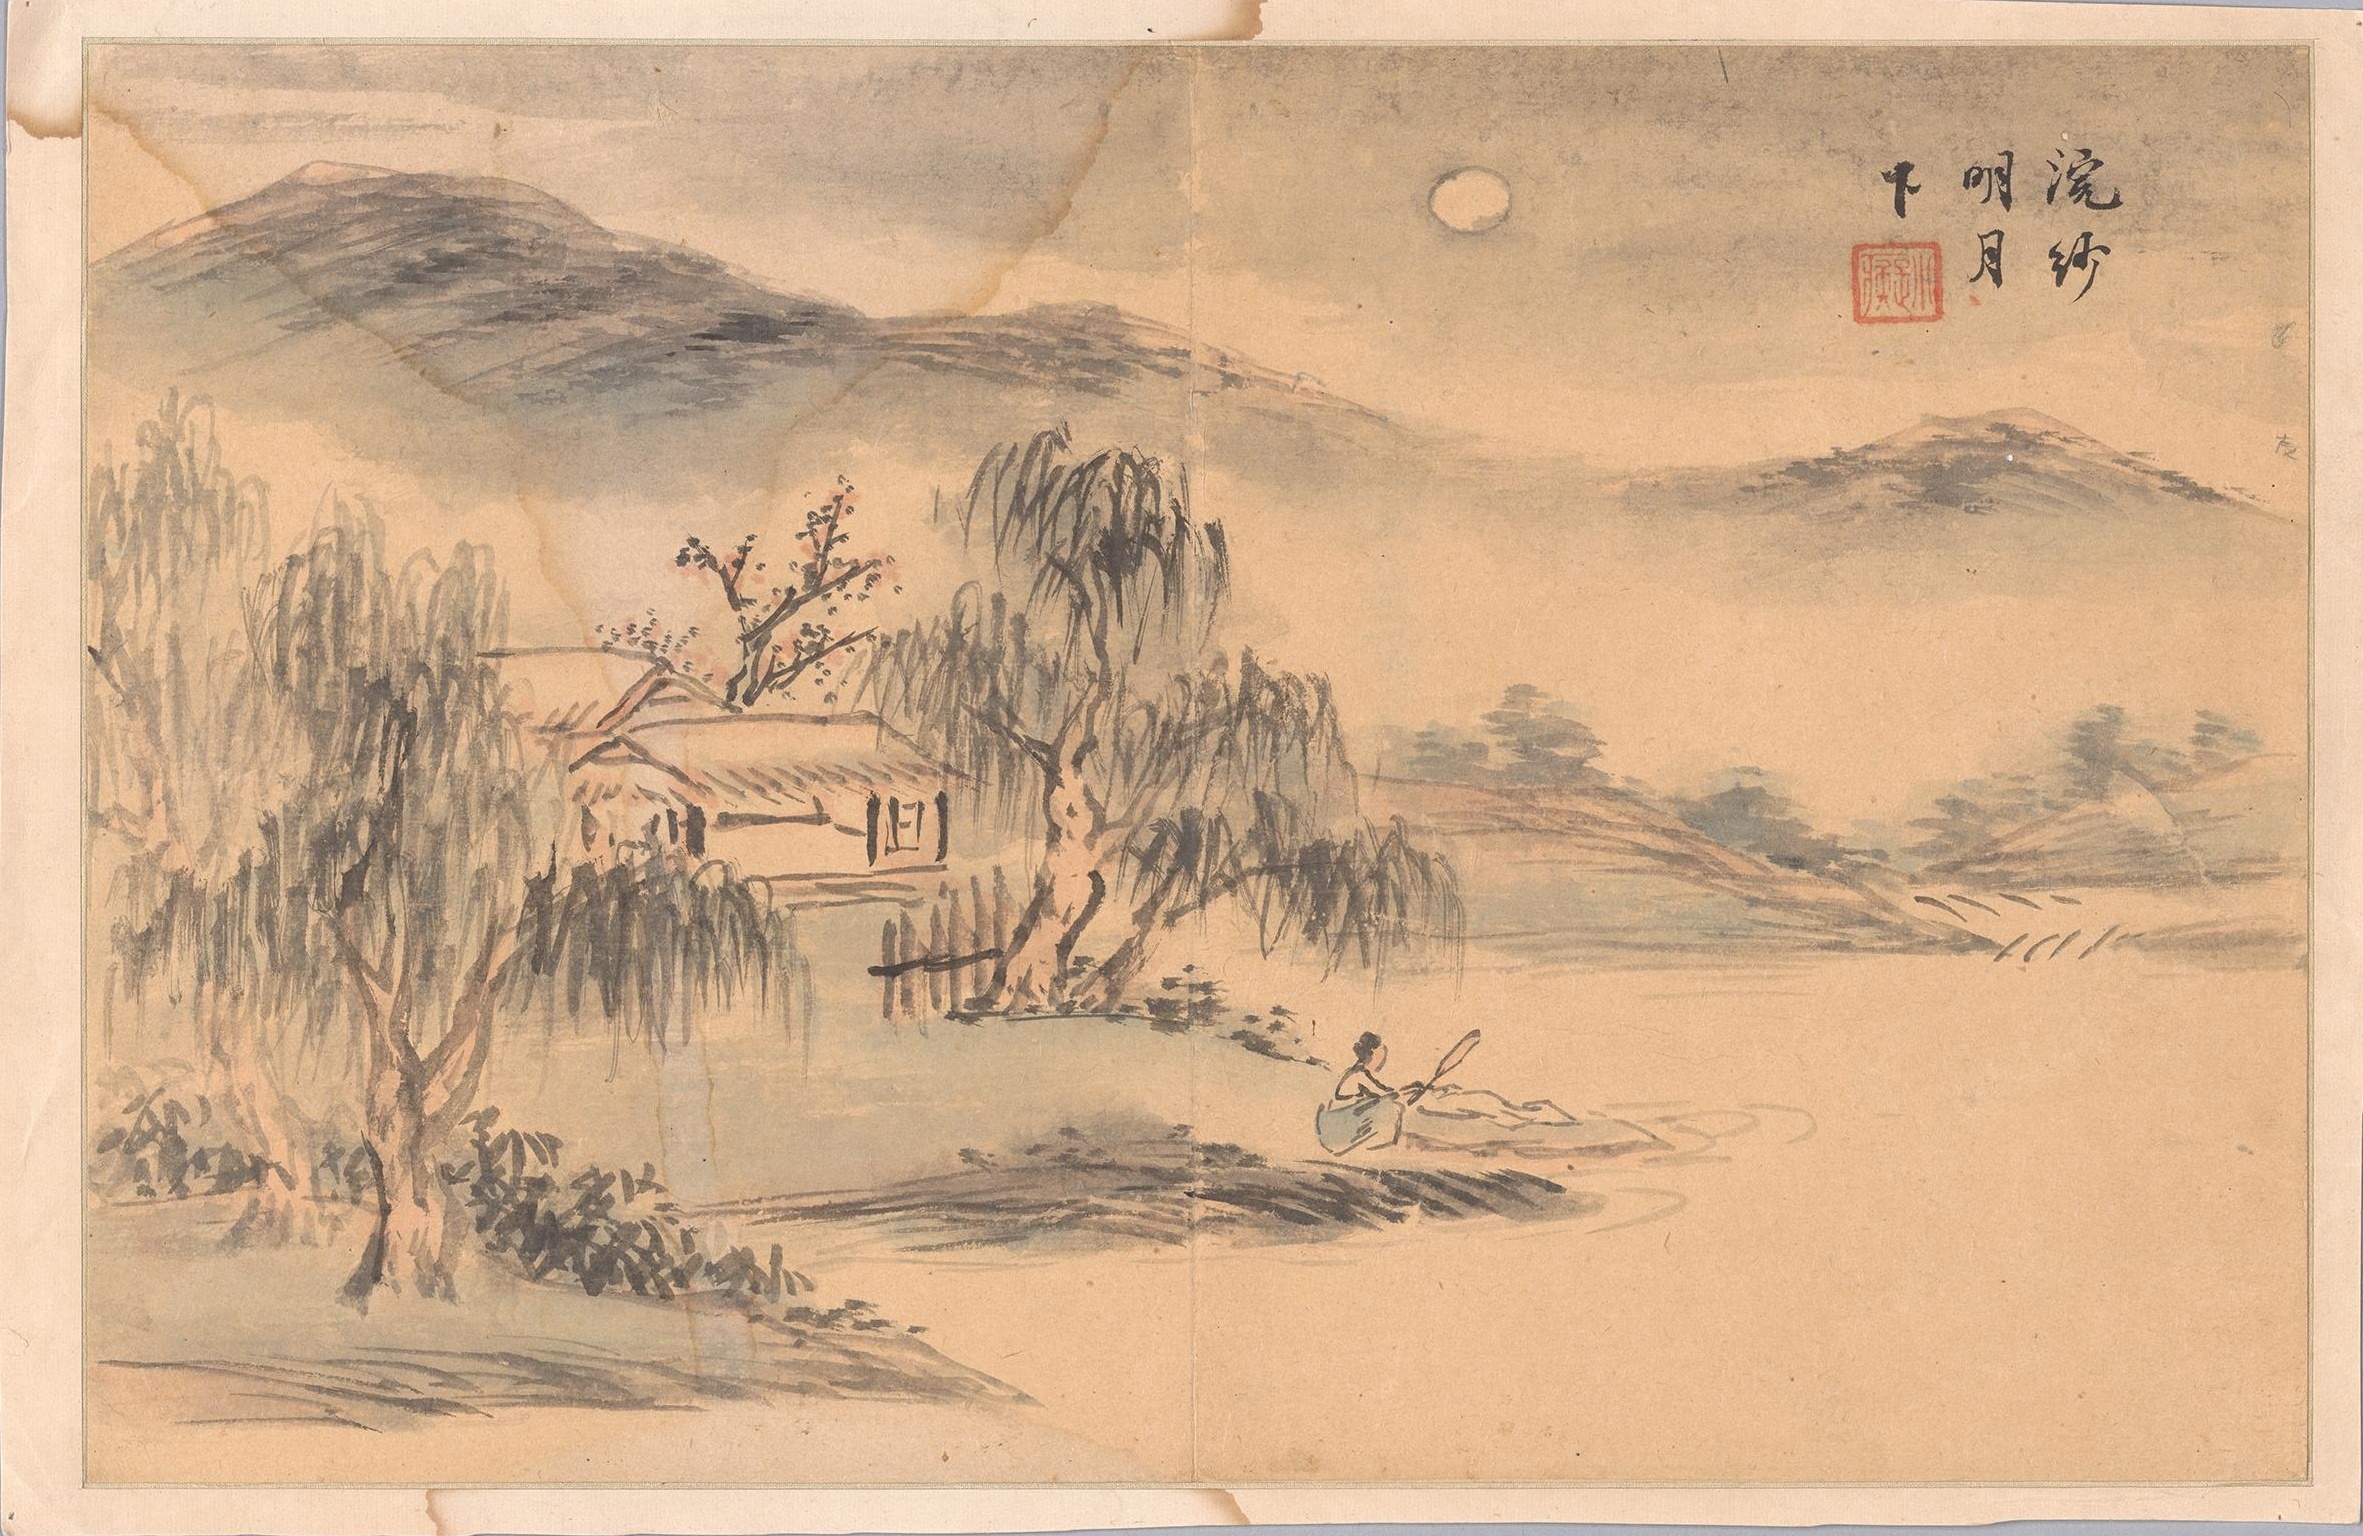 浣紗
明月
下